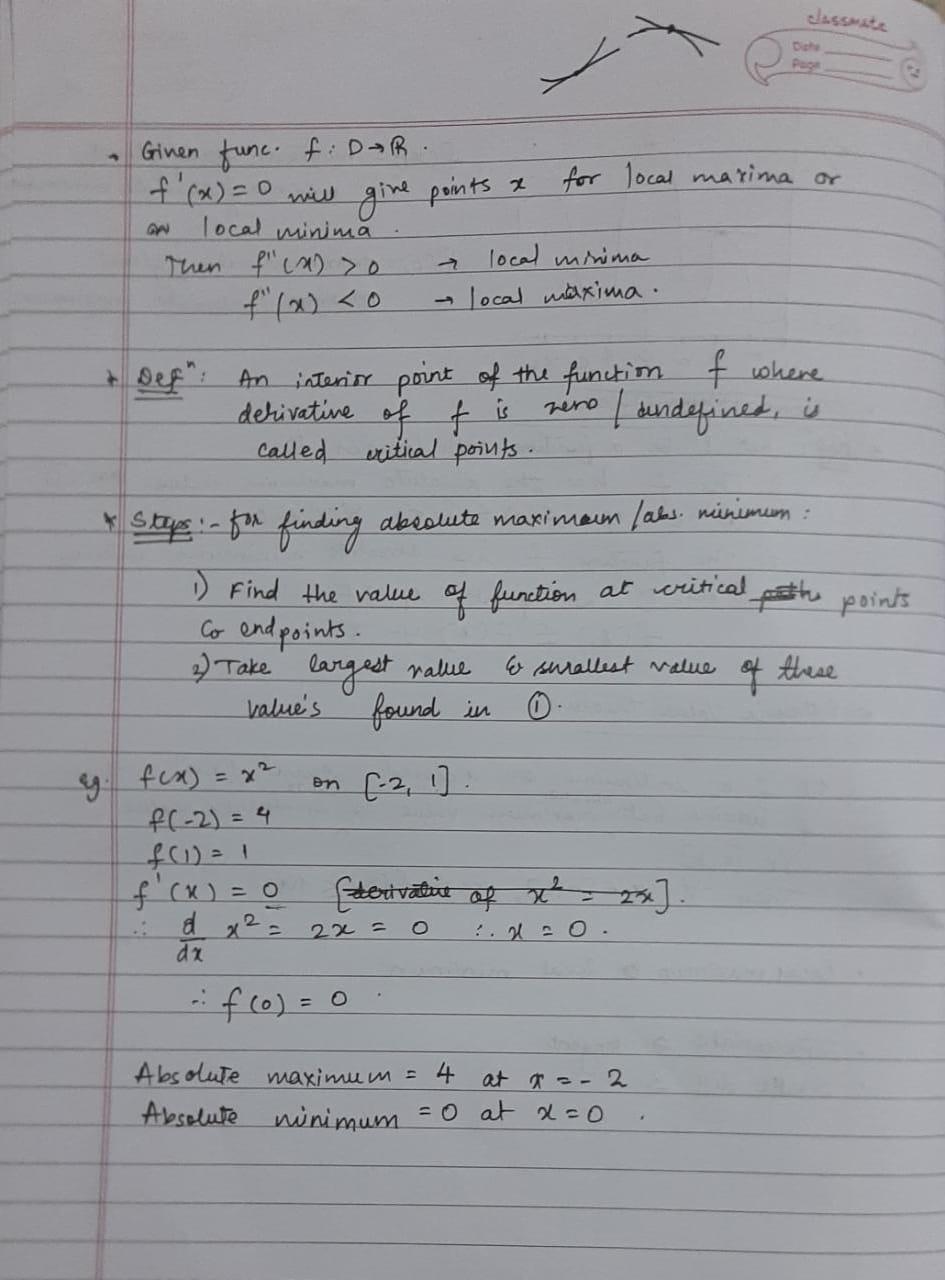 classmate
Date
Page
Given func. f : D→R.
f'(x) = 0 will give points x for local maxima or
local minima.
Then f''(x) > 0 → local minima
f''(x) < 0 → local maxima.
* Defⁿ: An interior point of the function f where
derivative of f is zero / undefined, is
called critical points.
* Steps:- for finding absolute maximum /abs. minimum :
1) Find the value of function at critical points
& endpoints.
2) Take largest value & smallest value of these
value's found in ①.
eg. f(x) = x² on [-2, 1].
f(-2) = 4
f(1) = 1
f'(x) = 0 [derivative of x² = 2x].
∴ d/dx x² = 2x = 0 ∴ x = 0.
∴ f(0) = 0.
Absolute maximum = 4 at x = - 2
Absolute minimum = 0 at x = 0.